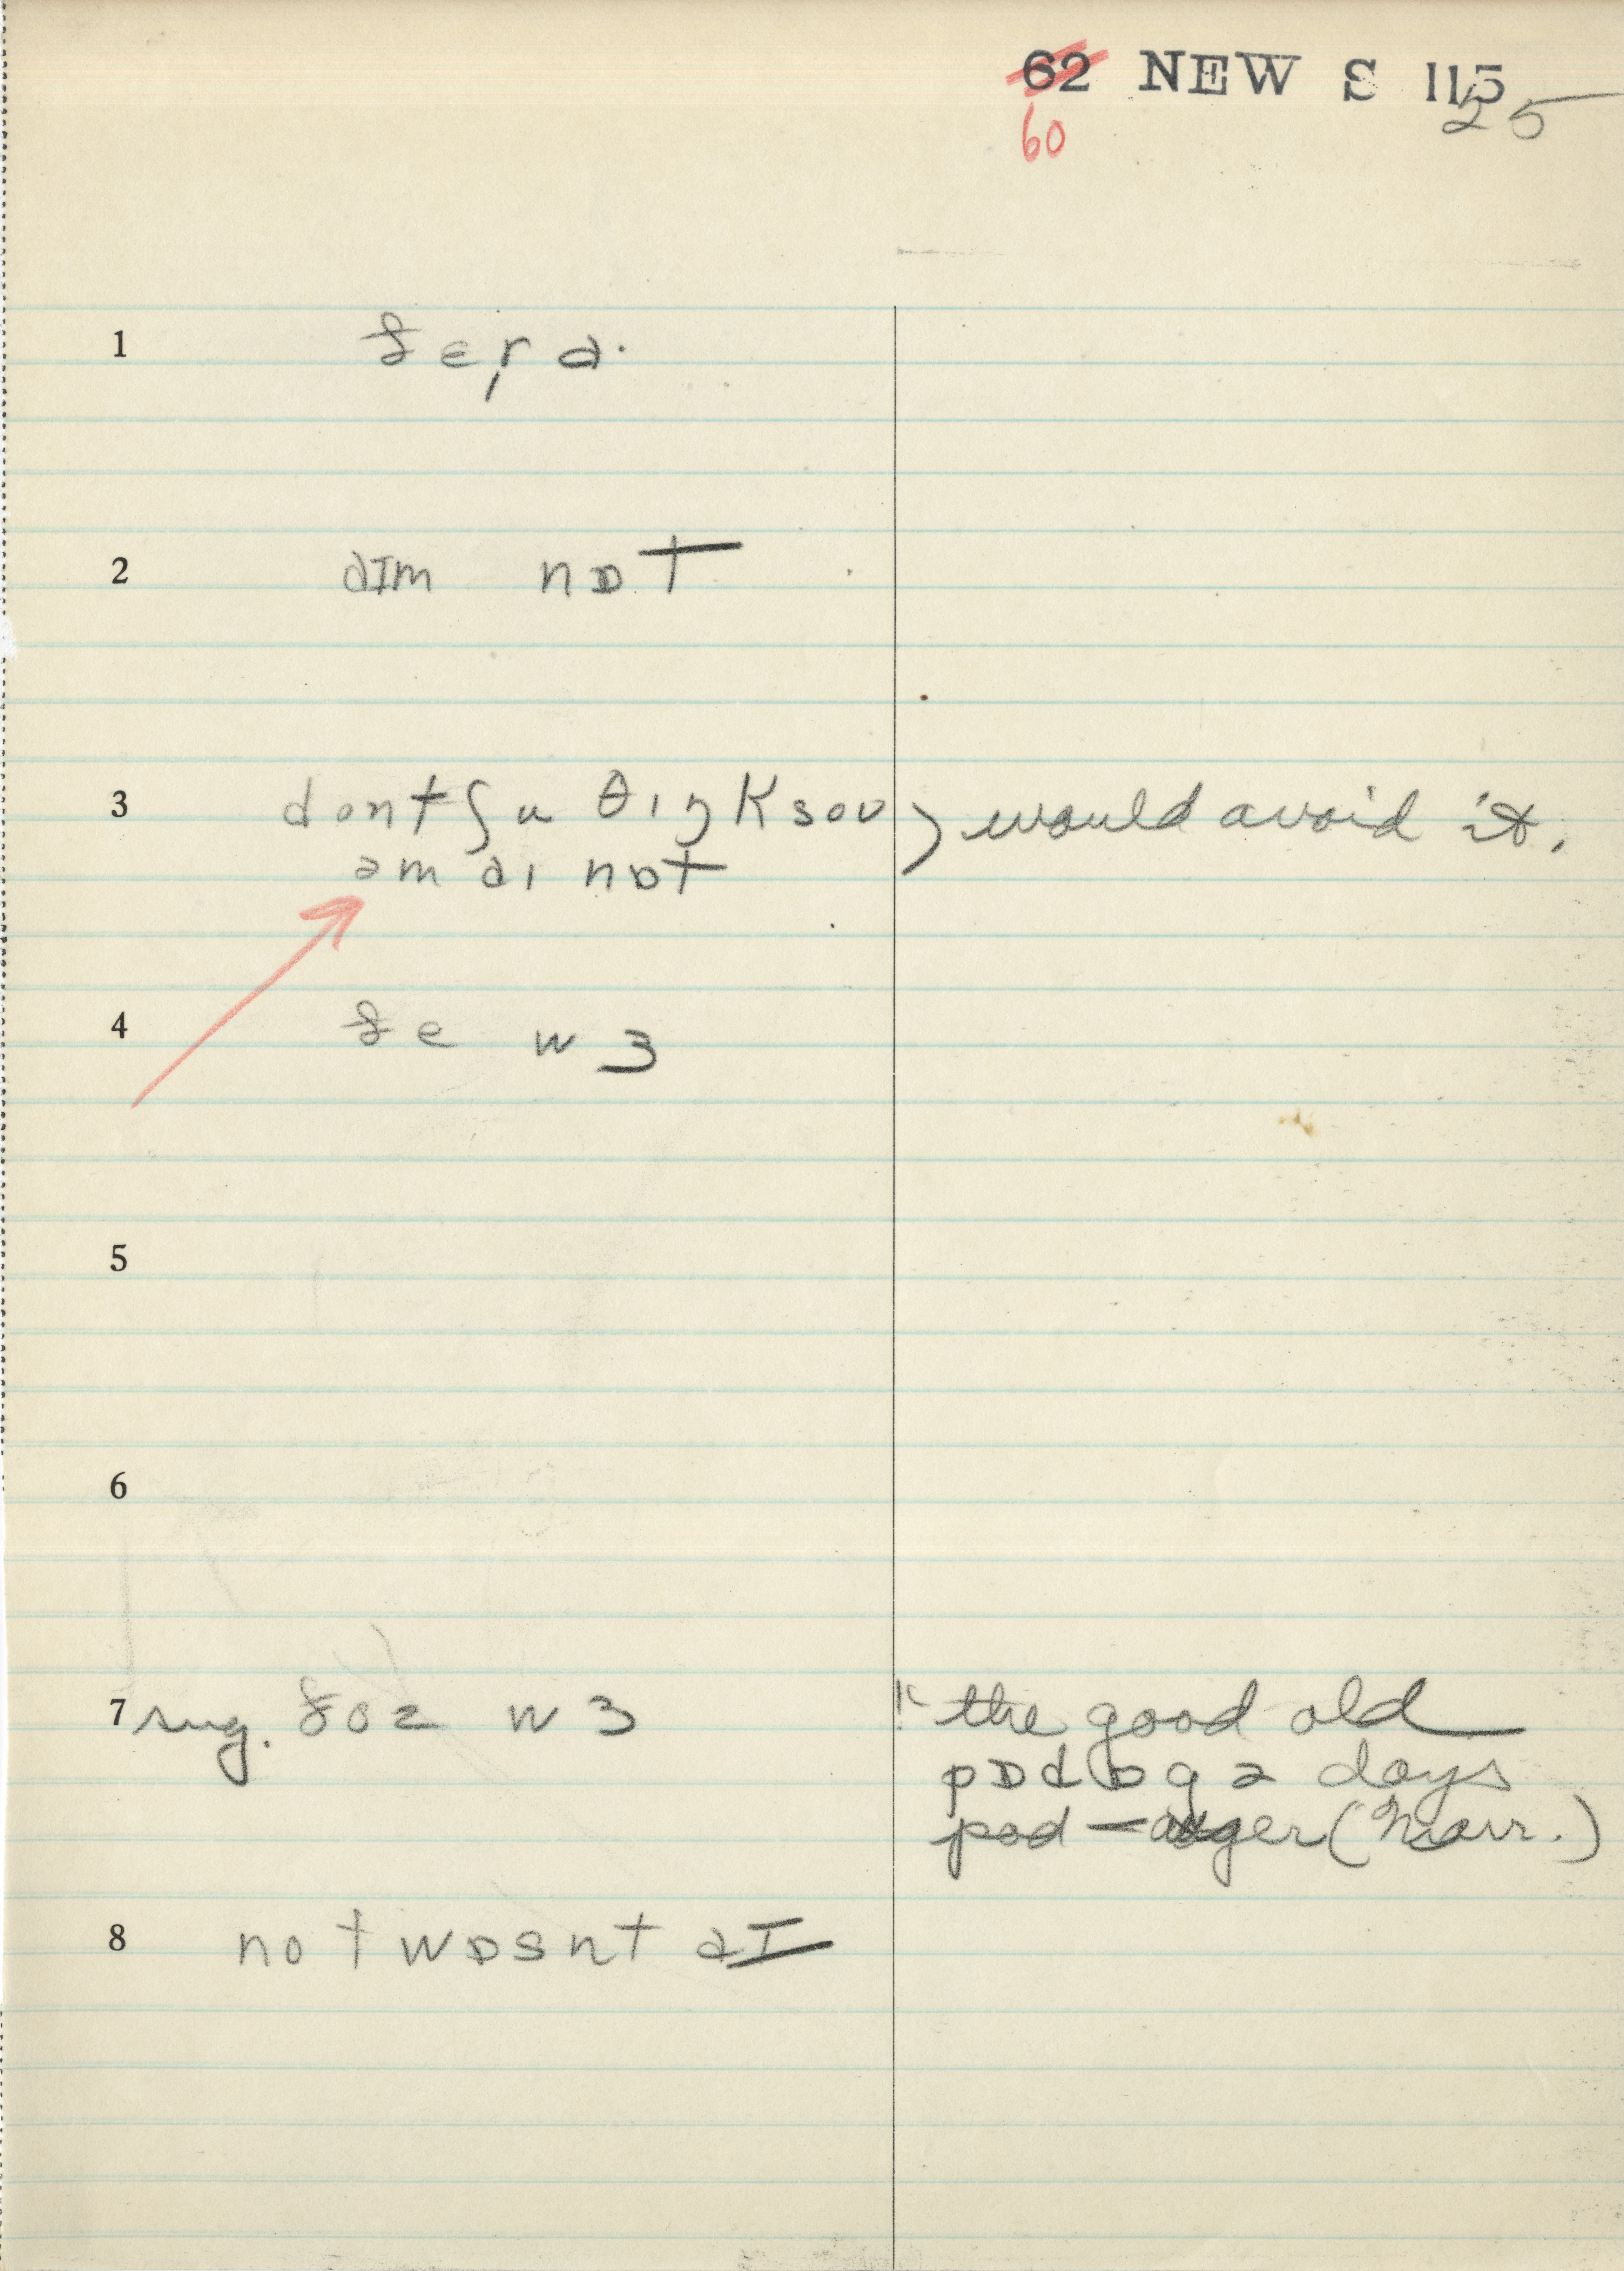 62 NEW S 115
60 25
1 ðɛɚ a·
2 aɪm nɒt
3 dontʃu θɪŋk sou ) would avoid it.
am aɪ nɒt
4 ðe wɜ
5
6
7 sug. ðoz wɜ " the good old
pɒdɒgə days
pod-auger (Narr.)
8 not wɒsnt aɪ